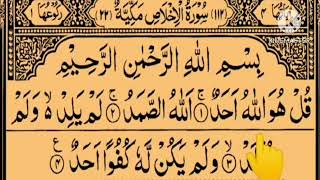 (١١٢) سُوْرَةُ الْاِخْلَاصِ مَكِّيَّةٌ (٢٢) رُكُوْعُهَا
بِسْمِ اللّٰهِ الرَّحْمٰنِ الرَّحِيْمِ
قُلْ هُوَ اللّٰهُ اَحَدٌ ۚ ١ اَللّٰهُ الصَّمَدُ ۚ ٢ لَمْ يَلِدْ ۙ وَلَمْ
٣ وَلَمْ يَكُنْ لَّهٗ كُفُوًا اَحَدٌ ۧ ٤